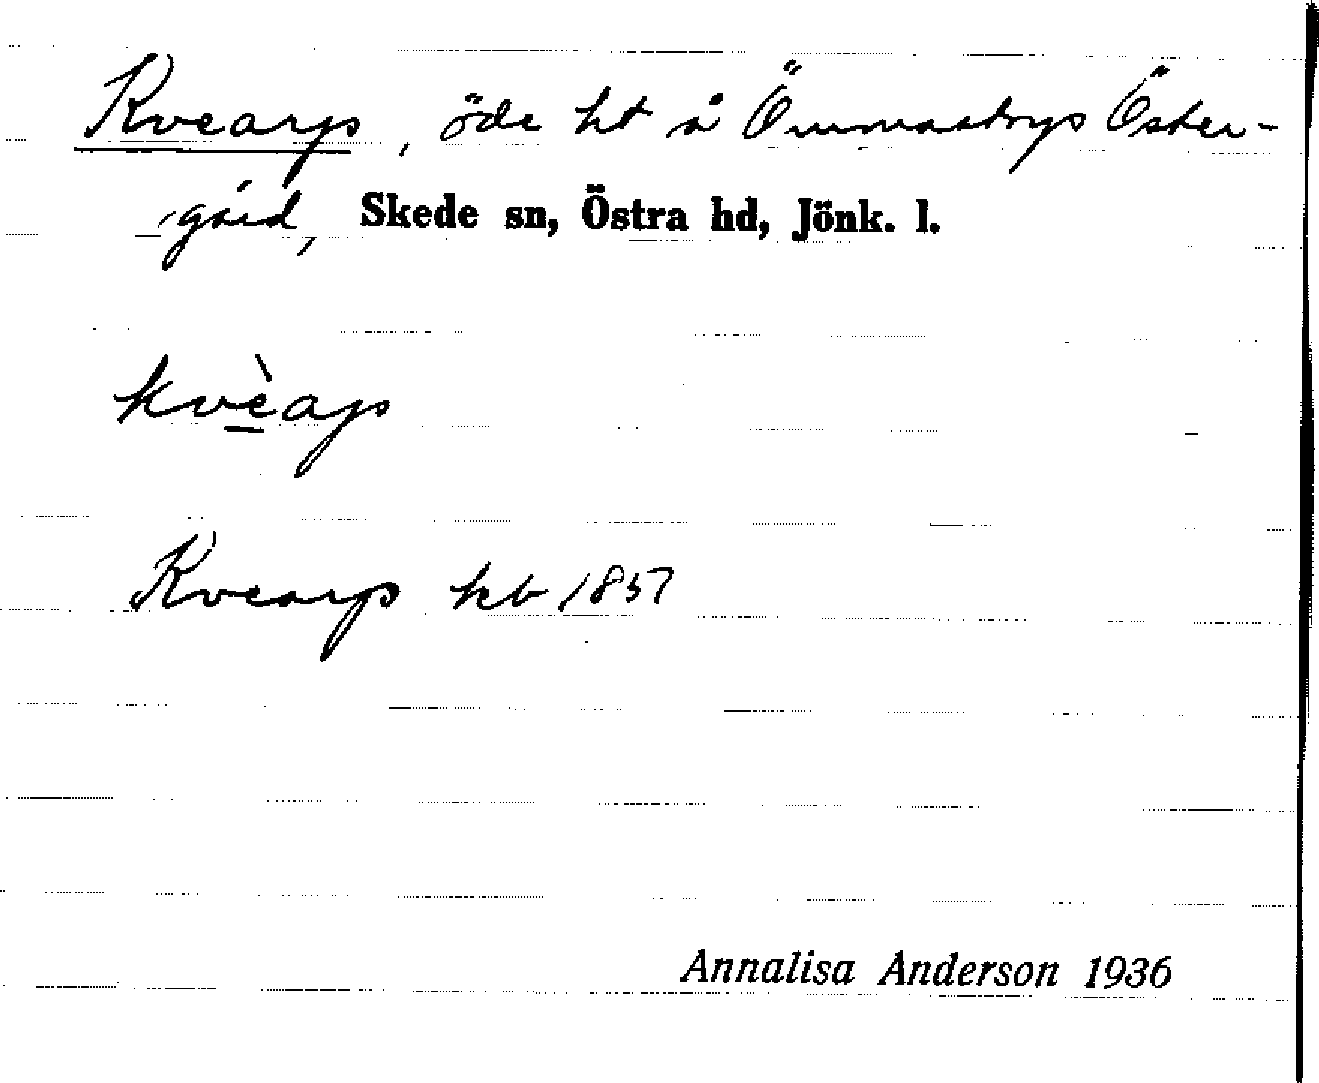 Kvearp, öde ht å Ömmastorps Öster-
gård, Skede sn, Östra hd, Jönk. l.
kvèap
Kvearp kb 1857
Annalisa Anderson 1936